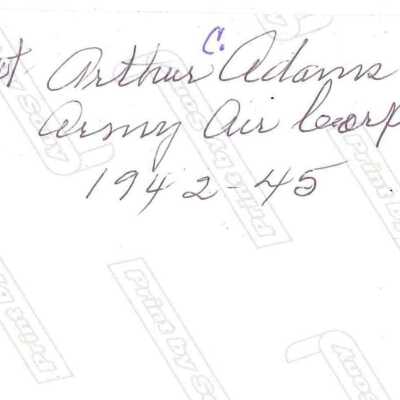 Arthur C. Adams
Army Air Corp
1942-45